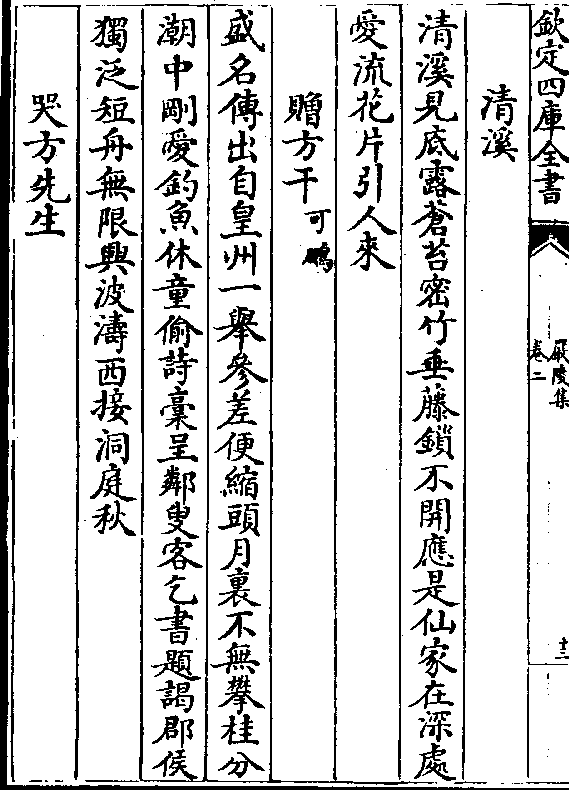 欽定四庫全書
嚴陵集
卷二
十三
清溪
清溪見底露蒼苔密竹垂藤鎖不開應是仙家在深處
愛流花片引人來
贈方干
可鵬
盛名傳出自皇州一舉參差便縮頭月裏不無攀桂分
潮中剛愛釣魚休童偷詩藁呈鄰叟客乞書題謁郡侯
獨泛短舟無限興波濤西接洞庭秋
哭方先生